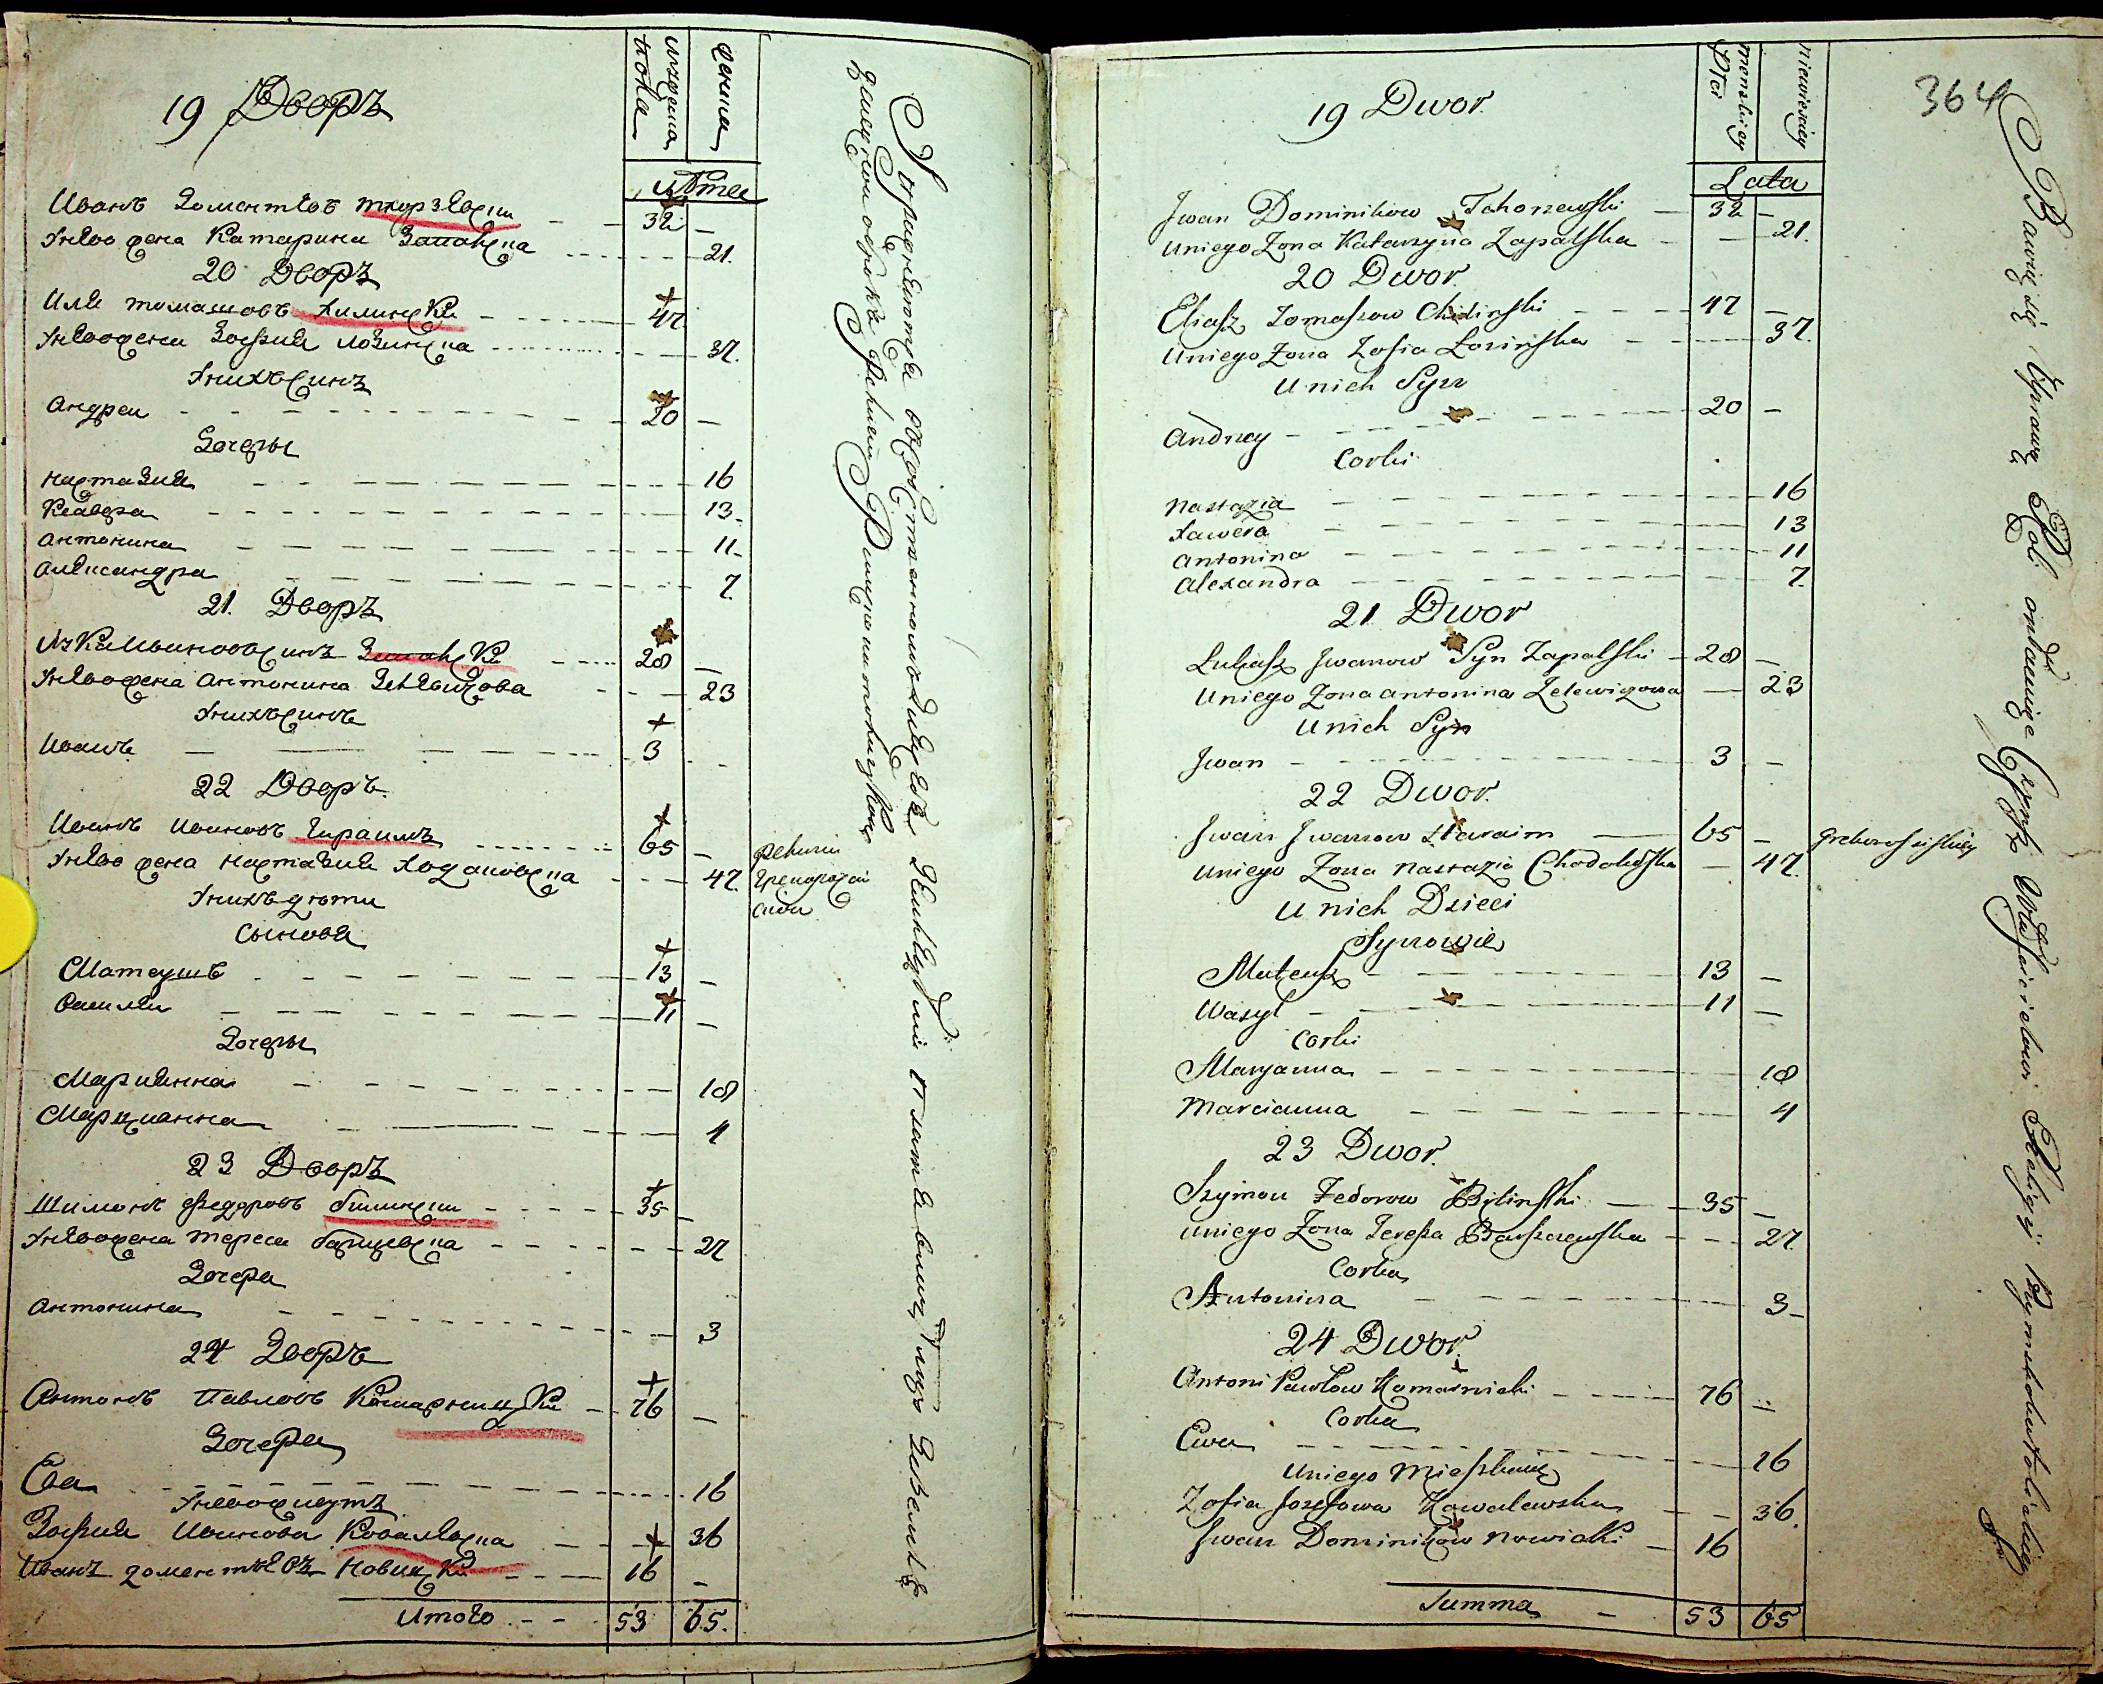 19 Дворъ
мужеска
пола
женска
Лѣтеи
Иванъ Доментіевъ Тхоржевски 32 -
У него жена Катарина Запалска 21.
20 Дворъ
Илія Томашовъ Хилински 47
У него жена Зофия Лозинска 37.
У нихъ синъ
Андреи 20 -
Дочеры
Настазия 16
Ксавера 13.
Антонина 11
Александра 7
21. Дворъ
Лукаш Ивановъ синъ Запалски 28 -
У него жена Антонина 23
У нихъ синъ
Иванъ 3
22 Дворъ
Иванъ Ивановъ Караимъ 65 -
У него жена Настазия Ходаковска 47.
У нихъ дѣти
Сынове
Матеушъ 13 -
Василеи 11 -
Дочеры
Марианна 18
Марцианна 4
23 Дворъ
Шимонъ Федоровъ Билински 35 -
У него жена Тереса 27
Дочера
Антонина 3
24 Дворъ
Антонъ Павловъ Комарницки 76 -
Дочера
Ева 16
У него живутъ
Зофия Иванова Ковалевска 36
Иванъ Доментіевъ Новицки 16 -
Итого 53 65.
364
19 Dwor
menskiey
Płci
niewiesciey
Lata
Jwan Dominikow Tchorzewski 32 -
U niego Zona Katarzyna Zapalska 21.
20 Dwor.
Eliasz Tomaszow Chilinski 47 -
U niego Zona Zofia Łozinska 37.
U nich Syn
Andrzey 20 -
Corki
Nastazia 16
Xawera 13
Antonina 11
Alexandra 7.
21 Dwor
Lukasz Jwanow Syn Zapalski 28 -
U niego Zona Antonina Zelewizowa 23
U nich Syn
Jwan 3 -
22 Dwor.
Jwan Jwanow Karaim 65 -
U niego Zona Nastazia Chodakoska 47.
U nich Dzieci
Synowie
Mateusz 13 -
Wasyl 11 -
Corki
Maryanna 18
Marcianna 4
23 Dwor.
Szymon Fedorow Bilinski 35 -
U niego Zona Teresa Barszczewska 27
Corka
Antonina 3
24 Dwor.
Antoni Pawłow Komarnicki 76
Corka
Ewa 16
U niego Mieszkaią
Zofia Jozefowa Kowalewska 36.
Jwan Dominikow Nowicki 16
Summa 53 65
Bawią się Uprawą Roli oddaiąc Czynsz Religij Rymskokatolickiey